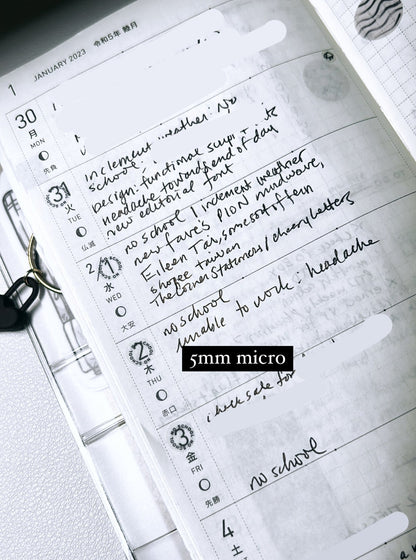 1 JANUARY 2023 令和5年 睦月
30
月
MON
先負
inclement weather: No
school
31
火
TUE
仏滅
Design: functional
headache toward end of day
new editorial font
2/1
水
WED
大安
no school / inclement weather
new fave's PION mudwave,
Eileen Tai, some sort of fern
shopee taiwan
The Corner Stationers / cheery letters
2
木
THU
赤口
no school
unable to work: headache
5mm micro
check sale for
3
金
FRI
先勝
no school
4
土